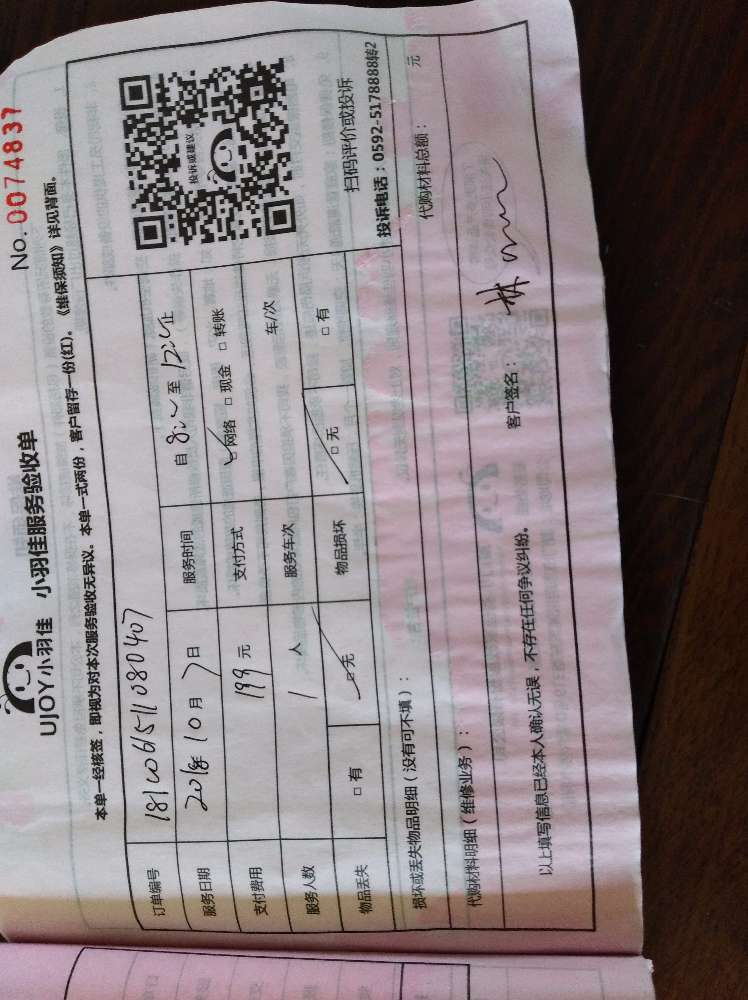 No. 0074837
UJOY小羽佳 小羽佳服务验收单
本单一经核签，即视为对本次服务验收无异议。本单一式两份，客户留存一份(红)。《维保须知》详见背面。
订单编号
服务日期 2018年 10 月 7 日 服务时间 自 至
支付费用 199 元 支付方式 □网络 □现金 □转账
服务人数 1 人 服务车次 车/次
物品丢失 □有 □无 物品损坏 □无 □有
投诉或建议
扫码评价或投诉
投诉电话：0592-5178888转2
损坏或丢失物品明细（没有可不填）：
代购材料明细（维修业务）： 代购材料总额： 元
以上填写信息已经本人确认无误，不存在任何争议纠纷。 客户签名： 林